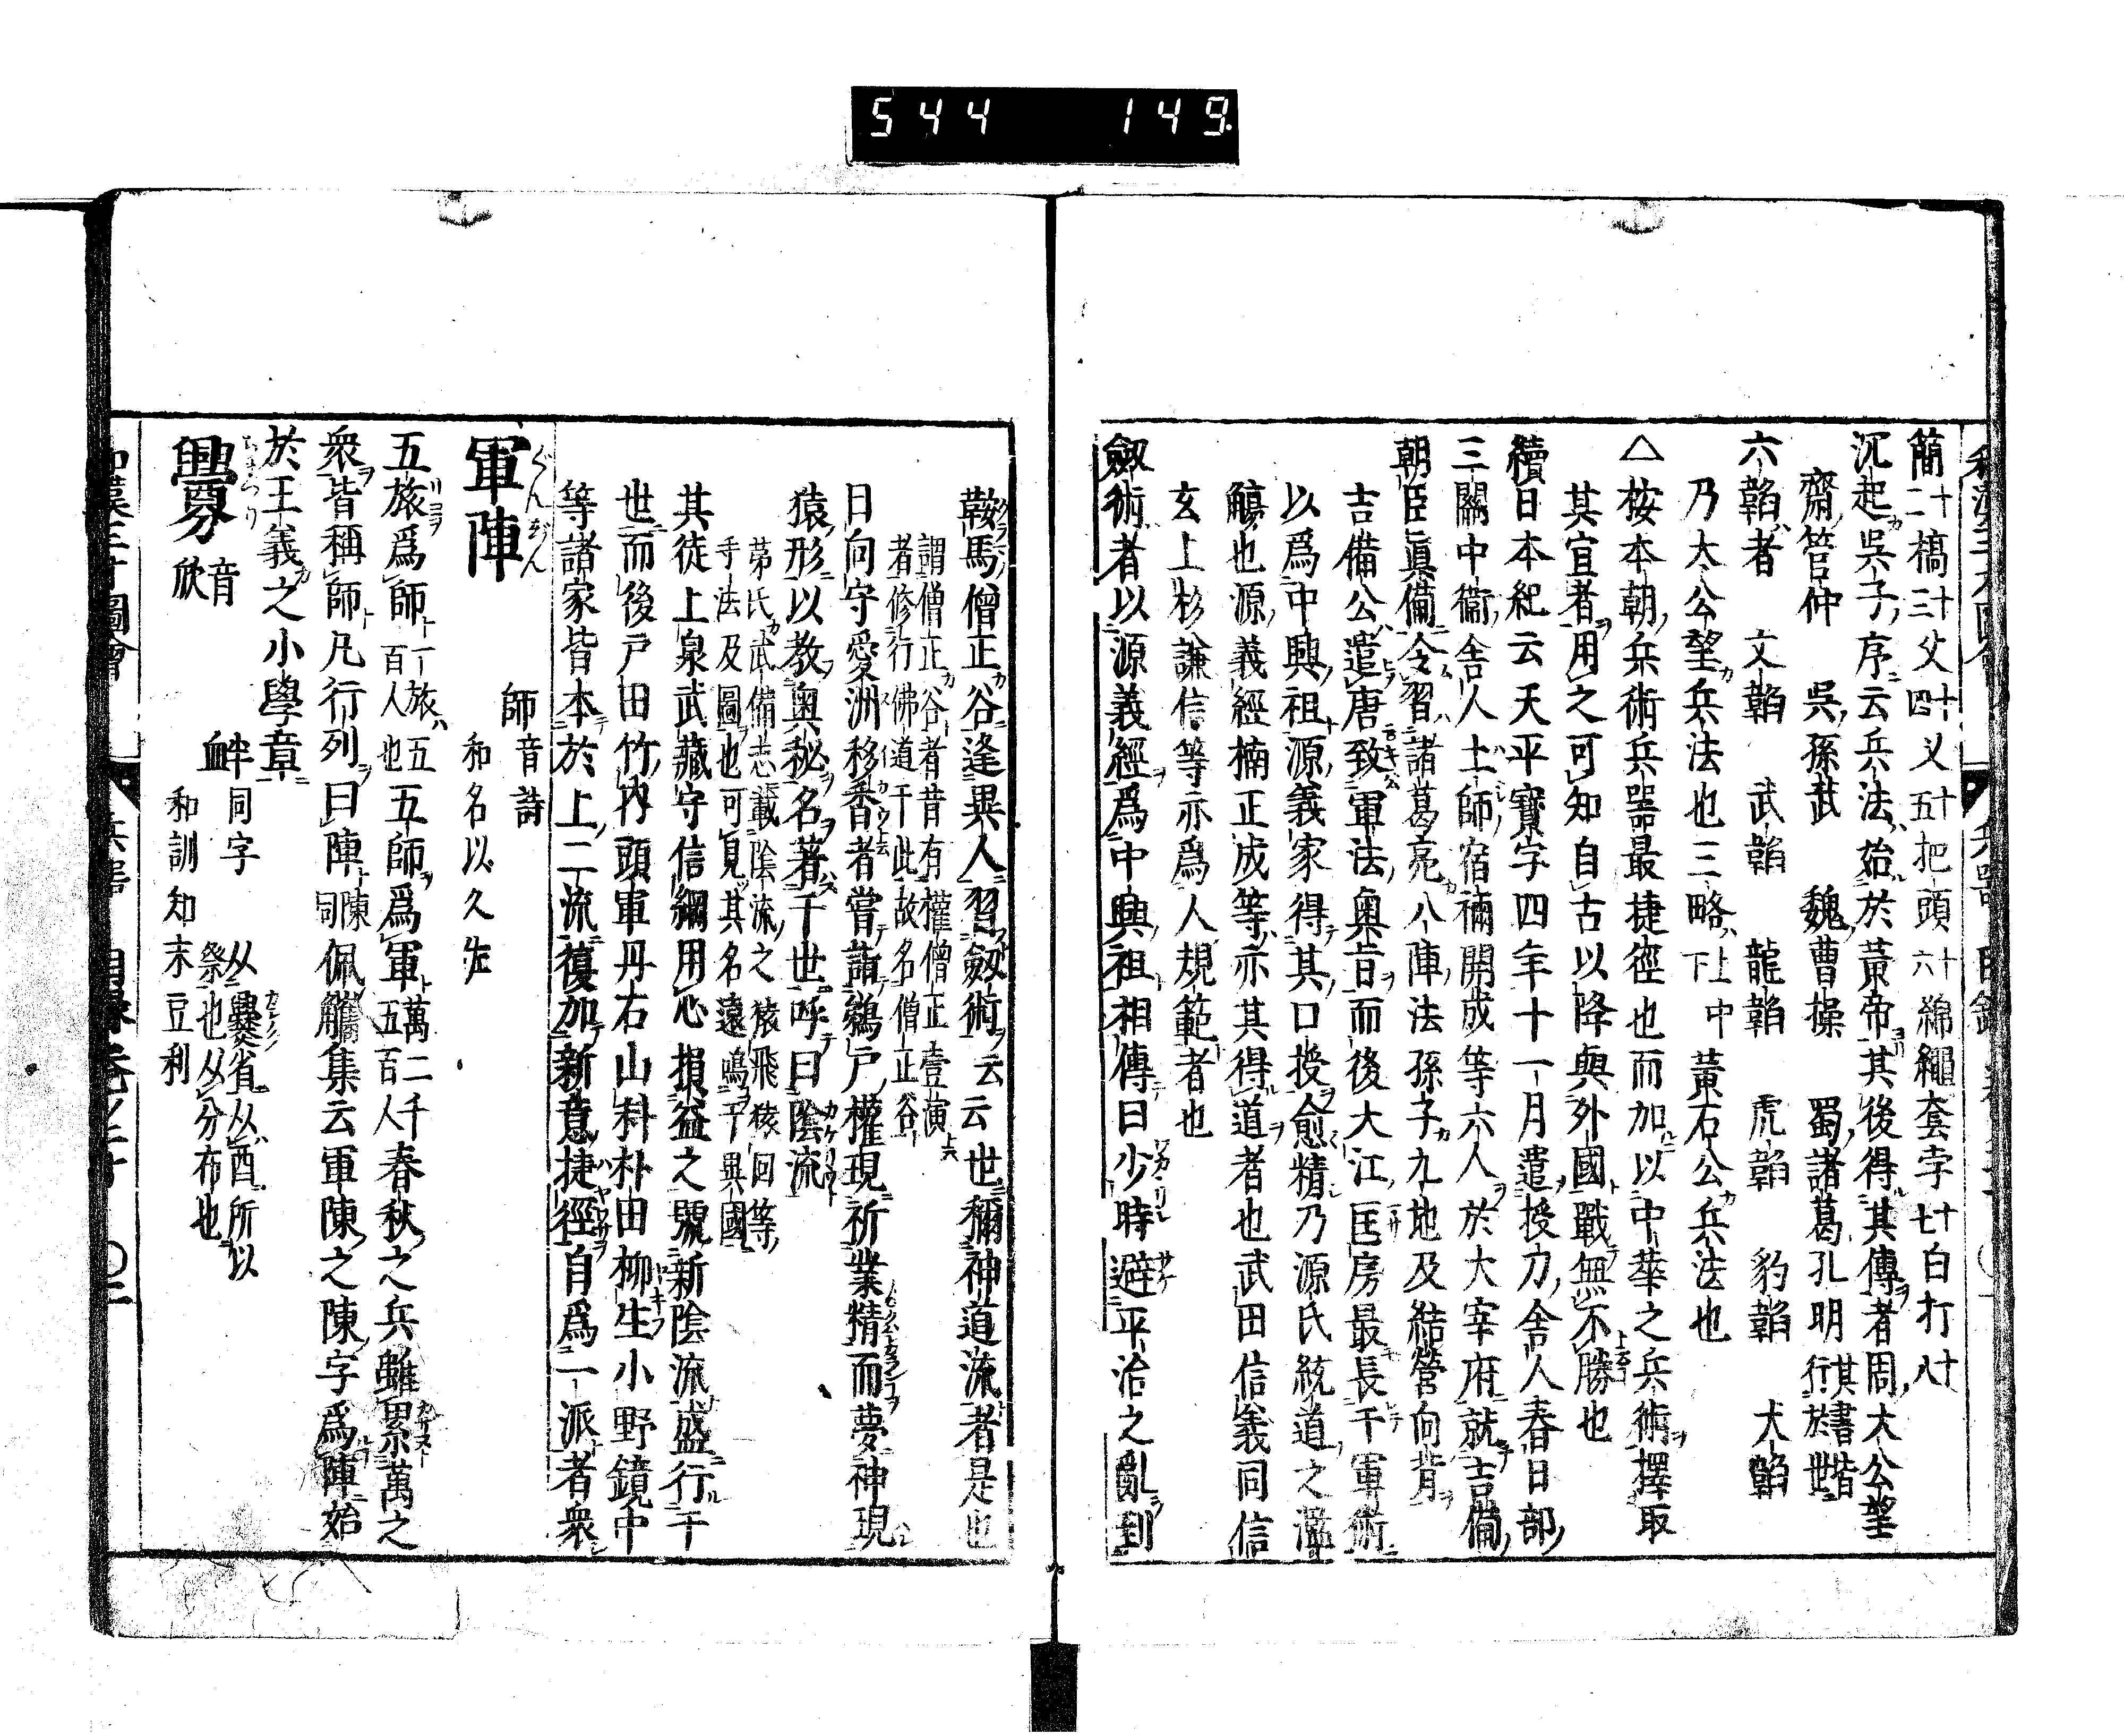 544 149.
簡十二 槁十三 父十四 乂十五 把頭十六 綿繩套孛十七 白打十八
沉起吳子序云兵法始於黃帝其後得其傳者周大公望
齋管仲 吳孫武 魏曹操 蜀諸葛孔明 其書皆行於世
六韜者 文韜 武韜 龍韜 虎韜 豹韜 犬韜
乃大公望兵法也三略上中下黃石公兵法也
△桉本朝兵術兵噐最捷徑也而加以中華之兵術擇取
其宜者用之可知自古以降與外國戰無不勝也
續日本紀云天平寶字四年十一月遣授刀舍人春日部
三關中衞舍人土師宿禰開成等六人於大宰府就吉備
朝臣眞備令習諸葛亮八陣法孫子九地及結營向背
吉備公遣唐致軍法奧旨而後大江匡房最長于軍術
以爲中興祖源義家得其口授愈精乃源氏統道之濫
觴也源義經楠正成等亦其得道者也武田信義同信
玄上杉謙信等亦爲人規範者也
劔術者以源義經爲中興祖相傳曰少時避平治之亂到
鞍馬僧正谷逢異人習劔術云云世稱神道流者是也
謂僧正谷者昔有權僧正壹演
者修行佛道于此故名僧正谷
日向守愛洲移香者嘗詣鵜戸權現祈業精而夢神現
猿形以教奥秘名著于世呼曰陰流
茅氏武備志載陰流之猿飛猿回等
手法及圖也可見其名遠鳴于異國
其徒上泉武藏守信綱用心損益之號新陰流盛行于
世而後戸田竹内頭軍丹右山科朴田柳生小野鏡中
等諸家皆本於上二流復加新意捷徑自爲一派者衆
軍陣 ぐんぢん
師音詩
和名以久左
五旅爲師一旅五百人也五師爲軍萬二千五百人春秋之兵雖累萬之
衆皆稱師凡行列曰陣陳同佩觿集云軍陳之陳字爲陣始
於王羲之小學章
釁 音欣
衅䘐同字
和訓知末豆利
从爨省从酉所以
祭也从分分布也